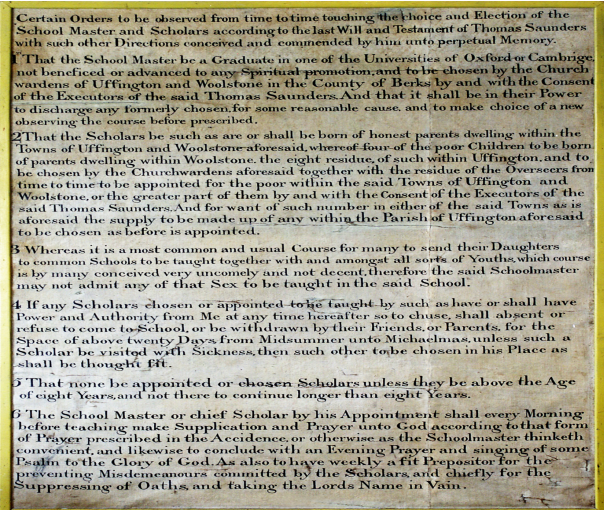 Certain Orders to be observed from time to time touching the choice and Election of the
School Master and Scholars according to the last Will and Testament of Thomas Saunders
with such other Directions conceived and commended by him unto perpetual Memory.
1 That the School Master be a Graduate in one of the Universities of Oxford or Cambrige,
not beneficed or advanced to any Spiritual promotion, and to be chosen by the Church
wardens of Uffington and Woolstone in the County of Berks by and with the Consent
of the Executors of the said Thomas Saunders. And that it shall be in their Power
to discharge any formerly chosen, for some reasonable cause, and to make choice of a new
observing the course before prescribed.
2 That the Scholars be such as are or shall be born of honest parents dwelling within the
Towns of Uffington and Woolstone aforesaid, whereof four of the poor Children to be born
of parents dwelling within Woolstone, the eight residue, of such within Uffington, and to
be chosen by the Churchwardens aforesaid together with the residue of the Overseers from
time to time to be appointed for the poor within the said Towns of Uffington and
Woolstone, or the greater part of them by and with the Consent of the Executors of the
said Thomas Saunders. And for want of such number in either of the said Towns as is
aforesaid the supply to be made up of any within the Parish of Uffington aforesaid
to be chosen as before is appointed.
3 Whereas it is a most common and usual Course for many to send their Daughters
to common Schools to be taught together with and amongst all sorts of Youths, which course
is by many conceived very uncomely and not decent, therefore the said Schoolmaster
may not admit any of that Sex to be taught in the said School.
4 If any Scholars chosen or appointed to be taught by such as have or shall have
Power and Authority from Me at any time hereafter so to chuse, shall absent or
refuse to come to School, or be withdrawn by their Friends, or Parents, for the
Space of above twenty Days, from Midsummer unto Michaelmas, unless such a
Scholar be visited with Sickness, then such other to be chosen in his Place as
shall be thought fit.
5 That none be appointed or chosen Scholars unless they be above the Age
of eight Years, and not there to continue longer than eight Years.
6 The School Master or chief Scholar by his Appointment shall every Morning
before teaching make Supplication and Prayer unto God according to that form
of Prayer prescribed in the Accidence, or otherwise as the Schoolmaster thinketh
convenient, and likewise to conclude with an Evening Prayer and singing of some
Psalm to the Glory of God. As also to have weekly a fit Prepositor for the
preventing Misdemeanours committed by the Scholars, and chiefly for the
Suppressing of Oaths, and taking the Lords Name in Vain.